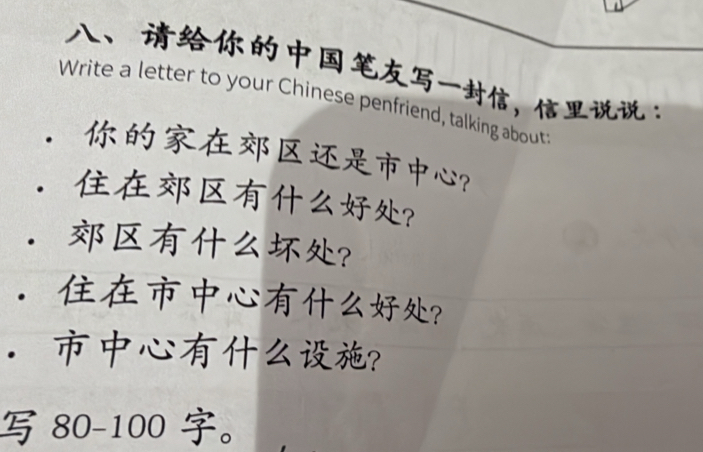 八、请给你的中国笔友写一封信，信里说说：
Write a letter to your Chinese penfriend, talking about:
· 你的家在郊区还是市中心?
· 住在郊区有什么好处?
· 郊区有什么坏处?
· 住在市中心有什么好处?
· 市中心有什么设施?
写 80-100 字。